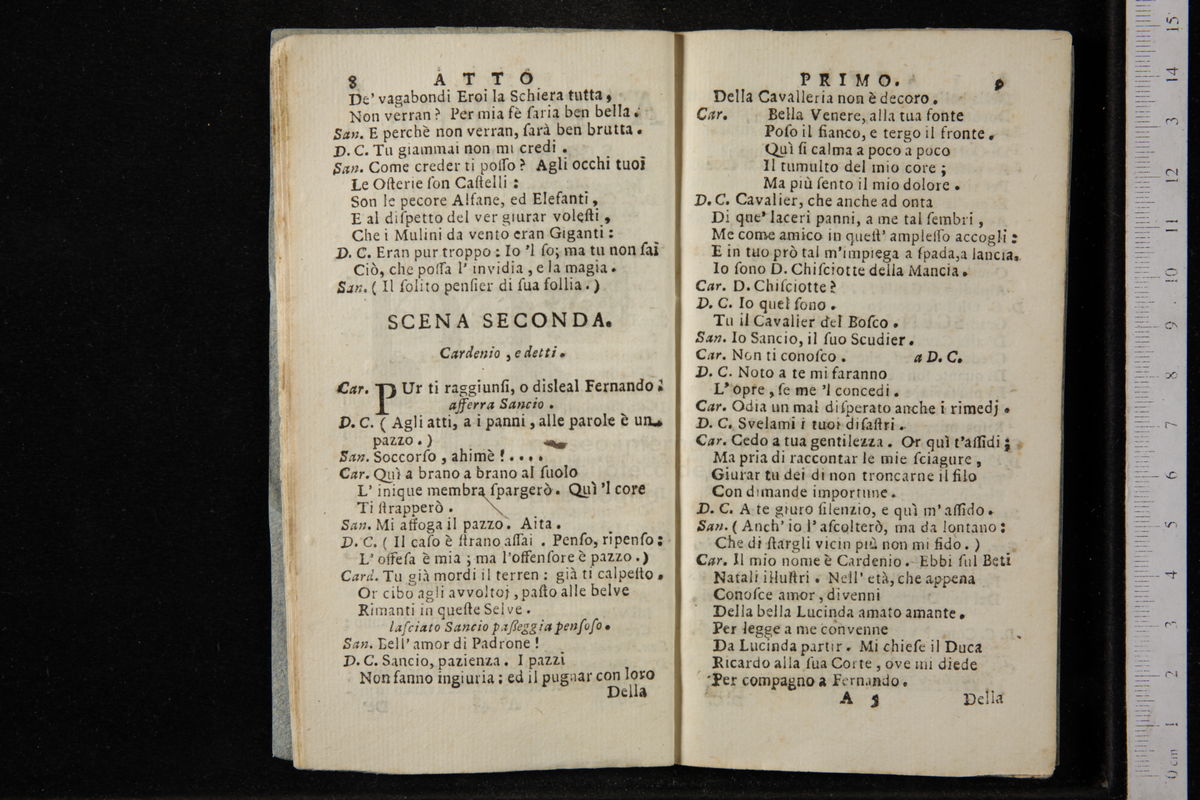 8 ATTO
De' vagabondi Eroi la Schiera tutta,
Non verran? Per mia fè saria ben bella.
San. E perchè non verran, sarà ben brutta.
D. C. Tu giammai non mi credi.
San. Come creder ti posso? Agli occhi tuoi
Le Osterie son Castelli:
Son le pecore Alfane, ed Elefanti,
E al dispetto del ver giurar volesti,
Che i Mulini da vento eran Giganti:
D. C. Eran pur troppo: Io 'l so; ma tu non sai
Ciò, che possa l' invidia, e la magia.
San. ( Il solito pensier di sua follia.)
SCENA SECONDA.
Cardenio, e detti.
Car. PUr ti raggiunsi, o disleal Fernando!
afferra Sancio.
D. C. ( Agli atti, a i panni, alle parole è un
pazzo.)
San. Soccorso, ahimè!....
Car. Quì a brano a brano al suolo
L' inique membra spargerò. Quì 'l core
Ti strapperò.
San. Mi affoga il pazzo. Aita.
D. C. ( Il caso è strano assai. Penso, ripenso:
L' offesa è mia; ma l'offensore è pazzo.)
Card. Tu già mordi il terren: già ti calpesto.
Or cibo agli avvoltoj, pasto alle belve
Rimanti in queste Selve.
lasciato Sancio passeggia pensoso.
San. Bell' amor di Padrone!
D. C. Sancio, pazienza. I pazzi
Non fanno ingiuria: ed il pugnar con loro
Della
PRIMO. 9
Della Cavalleria non è decoro.
Car. Bella Venere, alla tua fonte
Poso il fianco, e tergo il fronte.
Quì si calma a poco a poco
Il tumulto del mio core;
Ma più sento il mio dolore.
D. C. Cavalier, che anche ad onta
Di que' laceri panni, a me tal sembri,
Me come amico in quest' amplesso accogli:
E in tuo prò tal m'impiega a spada, a lancia.
Io sono D. Chisciotte della Mancia.
Car. D. Chisciotte?
D. C. Io quel sono.
Tu il Cavalier del Bosco.
San. Io Sancio, il suo Scudier.
Car. Non ti conosco. a D. C.
D. C. Noto a te mi faranno
L' opre, se me 'l concedi.
Car. Odia un mal disperato anche i rimedj.
D. C. Svelami i tuoi disastri.
Car. Cedo a tua gentilezza. Or quì t'assidi;
Ma pria di raccontar le mie sciagure,
Giurar tu dei di non troncarne il filo
Con dimande importune.
D. C. A te giuro silenzio, e quì m' assido.
San. ( Anch' io l' ascolterò, ma da lontano:
Che di stargli vicin più non mi fido.)
Car. Il mio nome è Cardenio. Ebbi sul Beti
Natali illustri. Nell' età, che appena
Conosce amor, divenni
Della bella Lucinda amato amante.
Per legge a me convenne
Da Lucinda partir. Mi chiese il Duca
Ricardo alla sua Corte, ove mi diede
Per compagno a Fernando.
A 5 Della
0 cm 1 2 3 4 5 6 7 8 9 10 11 12 13 14 15